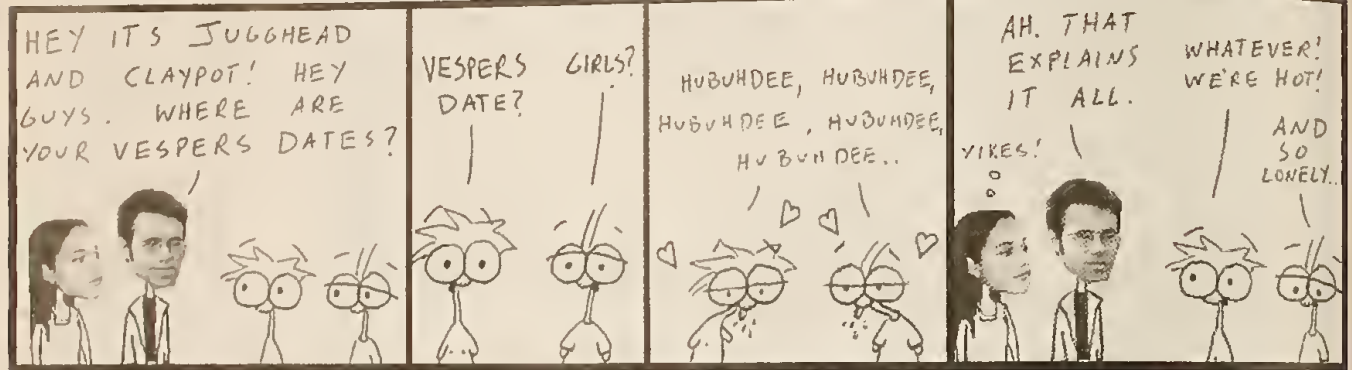 HEY ITS JUGGHEAD
AND CLAYPOT! HEY
GUYS. WHERE ARE
YOUR VESPERS DATES?
VESPERS
DATE?
GIRLS?
HUBUHDEE, HUBUHDEE,
HUBUHDEE, HUBUHDEE,
HUBUHDEE..
YIKES!
AH. THAT
EXPLAINS
IT ALL.
WHATEVER!
WE'RE HOT!
AND
SO
LONELY..